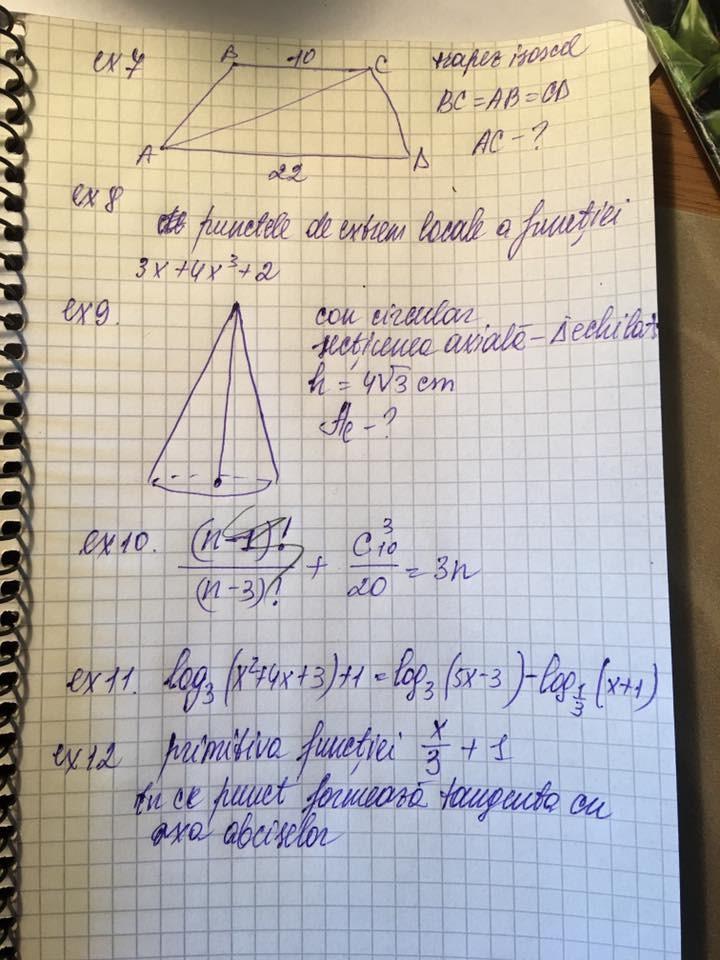 ex 7
B 10 C
A 22 D
trapez isoscel
BC = AB = CD
AC - ?
ex 8
punctele de extrem locale a funcției
3x+4x³+2
ex9.
con circular
secțiunea axială - Δ echilat
h = 4√3 cm
- ?
ex10. (n-1)!/(n-3)! + C³₁₀/20 = 3n
ex11. log₃(x²+4x+3)+1 = log₃(5x-3) - log_{1/3}(x+1)
ex12 primitiva funcției x/3 + 1
în ce punct formează tangenta cu
axa abciselor